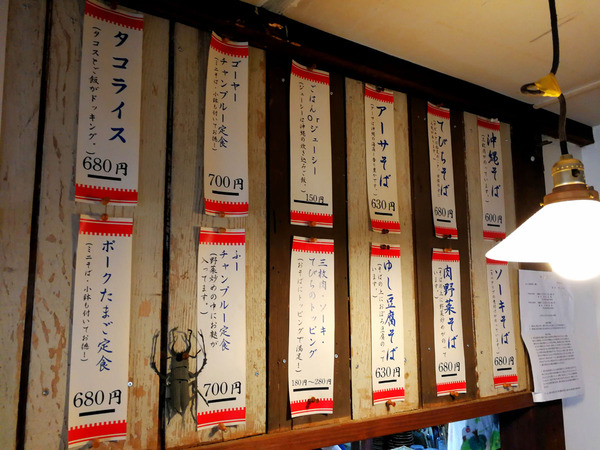 沖縄そば
600円
てびちそば
680円
アーサそば
630円
ごはんorジューシー
(ジューシーは沖縄の炊き込みご飯。)
150円
ゴーヤー
チャンプルー定食
(ミニそば・小鉢も付いてお徳ー)
700円
タコライス
(タコスとご飯がドッキング。)
680円
ソーキそば
680円
肉野菜そば
680円
ゆし豆腐そば
630円
三枚肉・ソーキ・
てびちのトッピング
(おそばにトッピングで満足ー)
180円〜280円
ふー
チャンプルー定食
(野菜炒めの中にお麩が
入ってます。)
700円
ポークたまご定食
(ミニそば・小鉢も付いてお徳ー)
680円